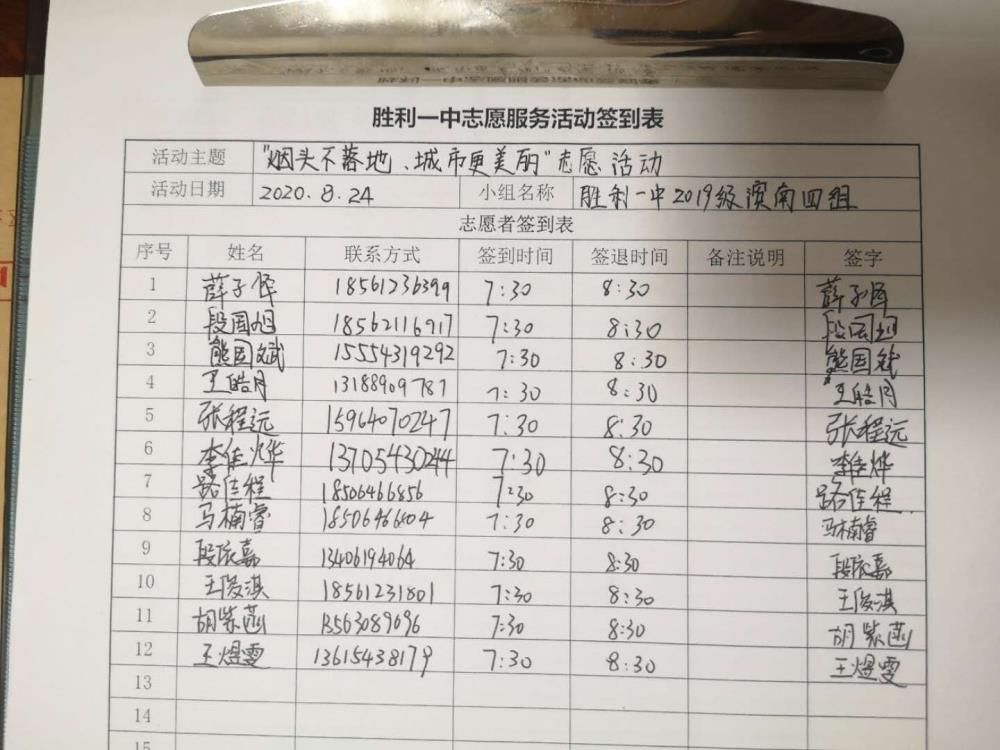 胜利一中志愿服务活动签到表
活动主题 "烟头不落地、城市更美丽"志愿活动
活动日期 2020.8.24 小组名称 胜利一中2019级滨南四组
志愿者签到表
序号 姓名 联系方式 签到时间 签退时间 备注说明 签字
1 薛子怿 18561236399 7:30 8:30 薛子怿
2 段国旭 18562116917 7:30 8:30 段国旭
3 熊国斌 15554319292 7:30 8:30 熊国斌
4 王皓月 13188909787 7:30 8:30 王皓月
5 张程远 15964070247 7:30 8:30 张程远
6 李佳烨 13705430244 7:30 8:30 李佳烨
7 路佳程 18506466856 7:30 8:30 路佳程
8 马楠睿 18506466404 7:30 8:30 马楠睿
9 段依嘉 13406194064 7:30 8:30 段依嘉
10 王俊淇 18561231801 7:30 8:30 王俊淇
11 胡紫菡 13563089696 7:30 8:30 胡紫菡
12 王煜雯 13615438179 7:30 8:30 王煜雯
13
14
15